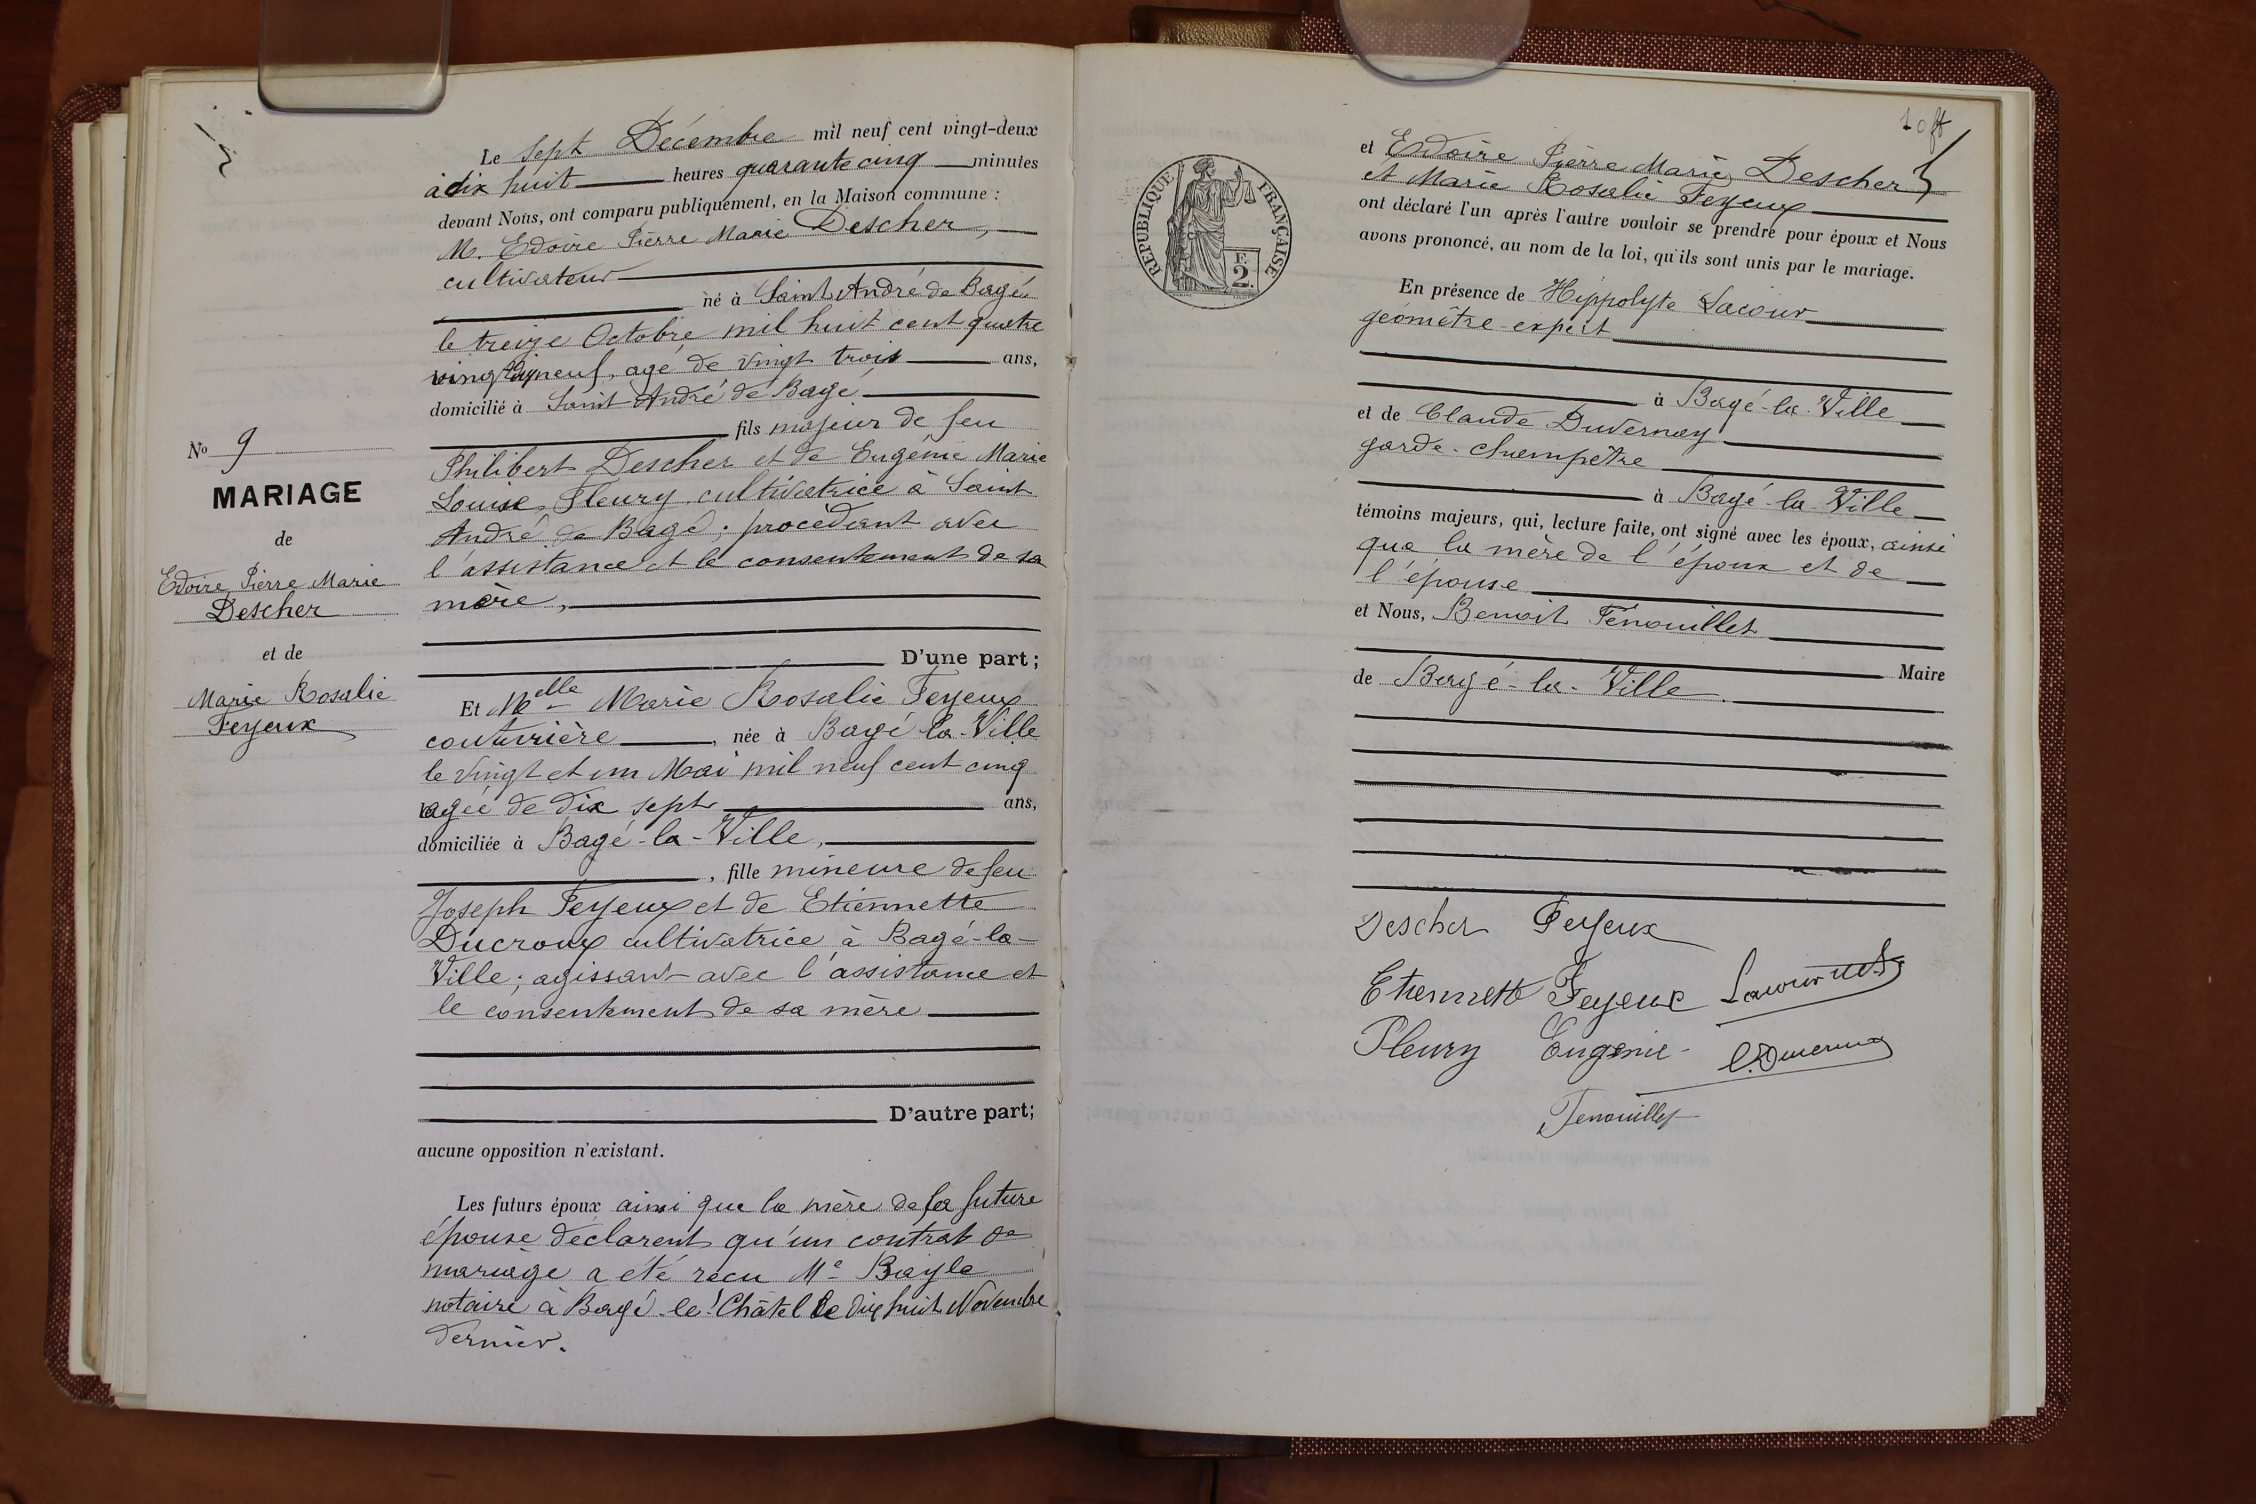 Le sept Décembre mil neuf cent vingt-deux
à dix huit heures quarante cinq minutes
devant Nous, ont comparu publiquement, en la Maison commune :
M. Edoire Pierre Marie Descher,
cultivateur
né à Saint André de Bagé
le treize Octobre mil huit cent quatre
vingt dix neuf, agé de vingt trois ans,
domicilié à Saint André de Bagé
fils majeur de feu
Philibert Descher et de Eugénie Marie
Louise Fleury cultivatrice à Saint
André de Bagé ; procédant avec
l'assistance et le consentement de sa
mère,
D'une part ;
Et Melle Marie Rosalie Feyeux
couturière, née à Bagé-la-Ville
le vingt et un Mai mil neuf cent cinq
agée de dix sept ans,
domiciliée à Bagé-la-Ville,
, fille mineure de feu
Joseph Feyeux et de Etiennette
Ducroux cultivatrice à Bagé-la-
Ville ; agissant avec l'assistance et
le consentement de sa mère
D'autre part ;
aucune opposition n'existant.
Les futurs époux ainsi que la mère de la future
épouse déclarent qu'un contrat de
mariage a été recu Me Bayle
notaire à Bagé-le-Châtel le dix huit Novembre
dernier.
No 9
MARIAGE
de
Edoire Pierre Marie
Descher
et de
Marie Rosalie
Feyeux
RÉPUBLIQUE FRANÇAISE
F.
2.
et Edoire Pierre Marie Descher
et Marie Rosalie Feyeux
ont déclaré l'un après l'autre vouloir se prendre pour époux et Nous
avons prononcé, au nom de la loi, qu'ils sont unis par le mariage.
En présence de Hippolyte Lacour
géomètre-expert
à Bagé-la-Ville
et de Claude Duvernay
garde-champêtre
à Bagé-la-Ville
témoins majeurs, qui, lecture faite, ont signé avec les époux, ainsi
que la mère de l'époux et de
l'épouse
et Nous, Benoit Fenouillet
Maire
de Bagé-la-Ville.
Descher Feyeux
Etiennette Feyeux Lacour
Fleury Eugénie C. Duvernay
Fenouillet